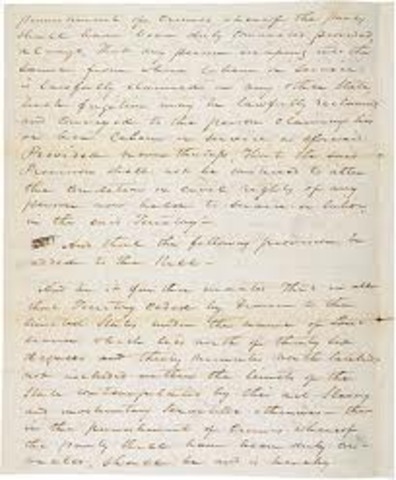 punishment of crimes whereof the party
shall have been duly convicted provided
always That any person escaping into the
same from whom labour or service
is lawfully claimed in any other State
such fugitive may be lawfully reclaimed
and conveyed to the person claiming his
or her labour or service as aforesaid
Provided nevertheless That the said
Provision shall not be construed to alter
the condition or civil rights of any
person now held to service or labour
in the said Territory—
And that the following provision be
added to the Bill—
And be it further enacted That in all
that Territory ceded by France to the
United States under the name of Louisiana
which lies north of thirty six
degrees and thirty minutes north latitude
not included within the limits of the
State contemplated by this act slavery
and involuntary servitude otherwise than
in the punishment of crimes whereof
the party shall have been duly con-
victed, shall be and is hereby